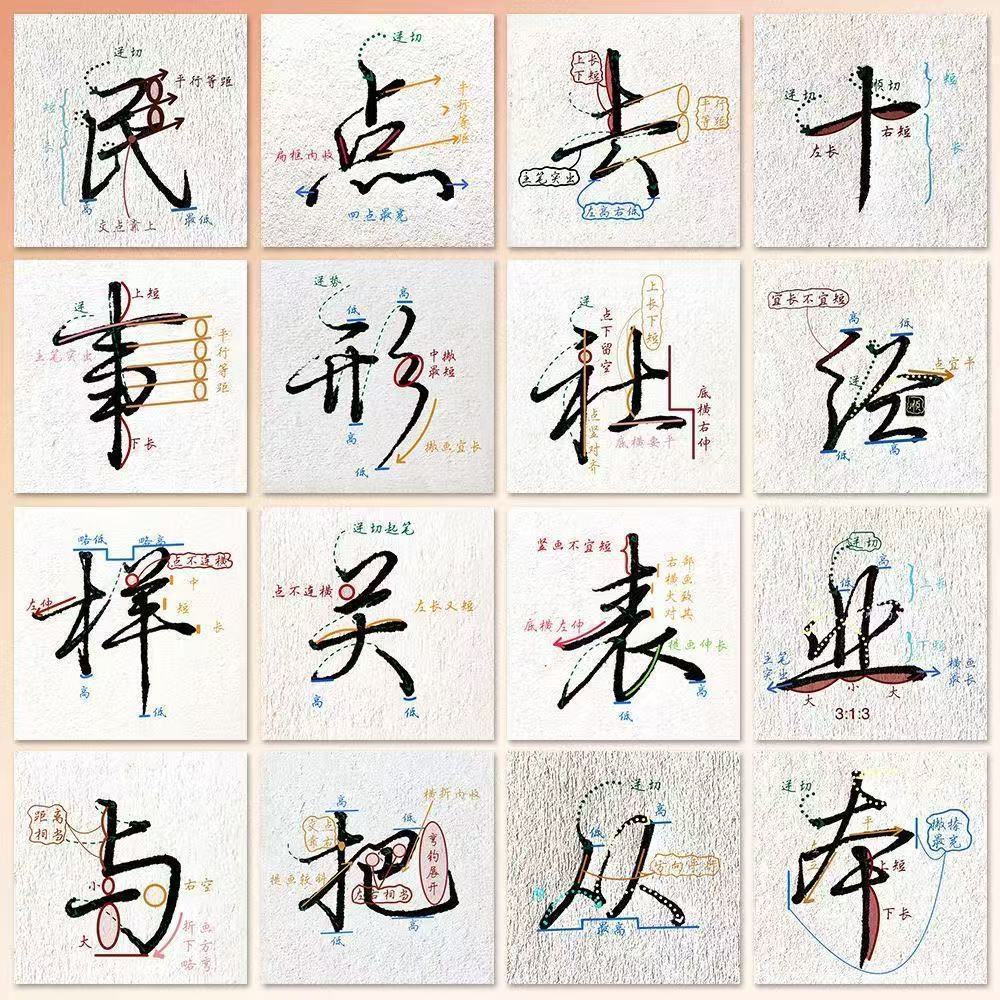 民
逆切
平行等距
短
长
高
最低
交点靠上
点
逆切
平行等距
扁框内收
四点最宽
去
上长
下短
平行
等距
主笔突出
左高右低
十
逆切
顺切
左长
右短
短
长
事
上短
逆
主笔突出
平行等距
下长
形
逆势
低
高
中撇
最短
高
低
撇画宜长
社
逆
点下留空
上长下短
点竖对齐
底横要平
底横右伸
经
宜长不宜短
高
低
逆
点宜平
低
高
样
略低
略高
点不连横
左伸
中
短
长
高
低
关
逆切起笔
点不连横
左长又短
高
低
表
竖画不宜短
右部
横画
大致
对其
底横左伸
捺画伸长
高
低
业
逆切
高
低
上长
下短
主笔
突出
横画
最长
大
小
大
3:1:3
与
距离
相当
小
大
右空
折画
下方
略弯
把
高
低
横折内收
交点
靠右
提画较斜
左右相当
弯钩展开
低
高
从
逆切
高
低
最高
本
逆切
平
左
上短
下长
撇捺
最宽